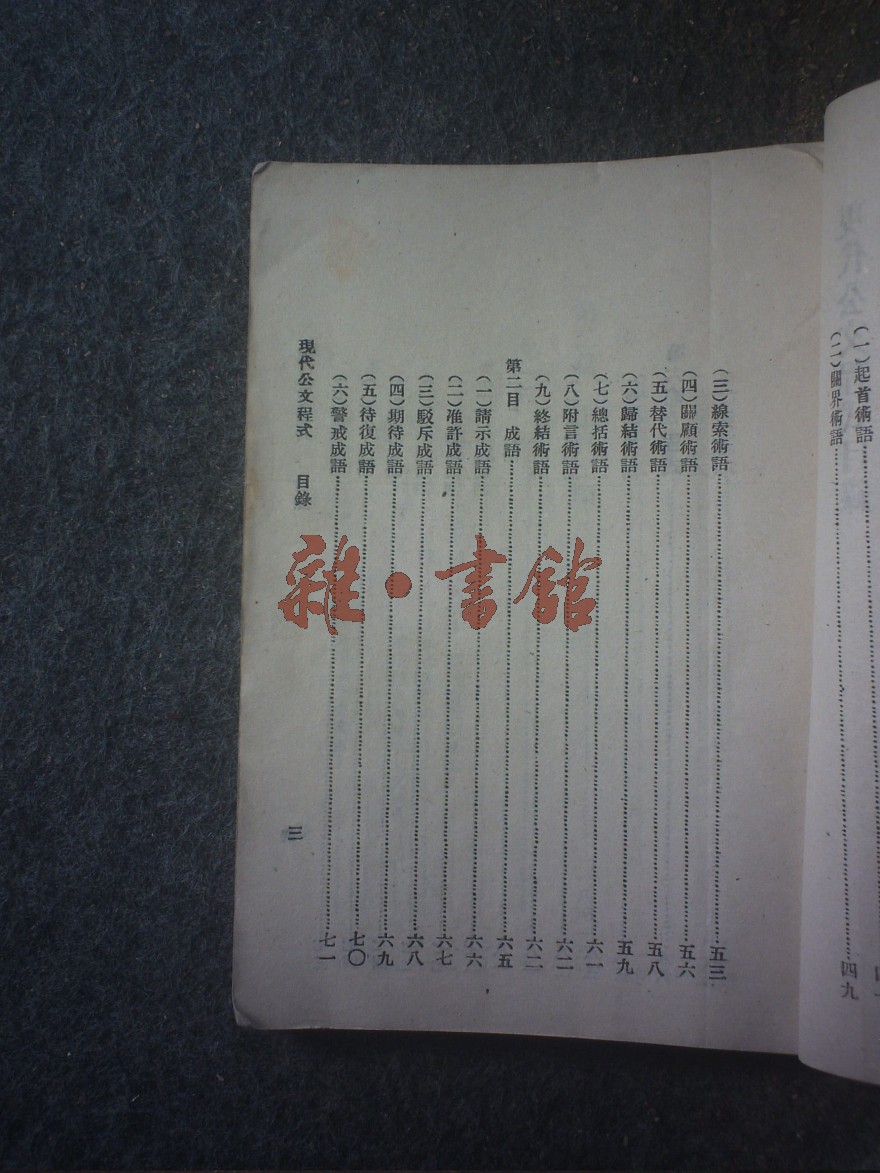 (一)起首術語
(二)關界術語……四九
(三)線索術語……五三
(四)關顧術語……五六
(五)替代術語……五八
(六)歸結術語……五九
(七)總括術語……六一
(八)附言術語……六二
(九)終結術語……六二
第二目 成語……六五
(一)請示成語……六六
(二)准許成語……六七
(三)駁斥成語……六八
(四)期待成語……六九
(五)待復成語……七〇
(六)警戒成語……七一
現代公文程式 目錄 三
雜·書館